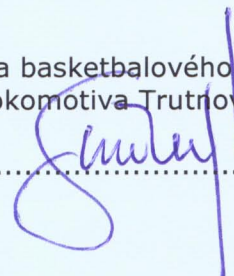 a basketbalového
okomotiva Trutnov